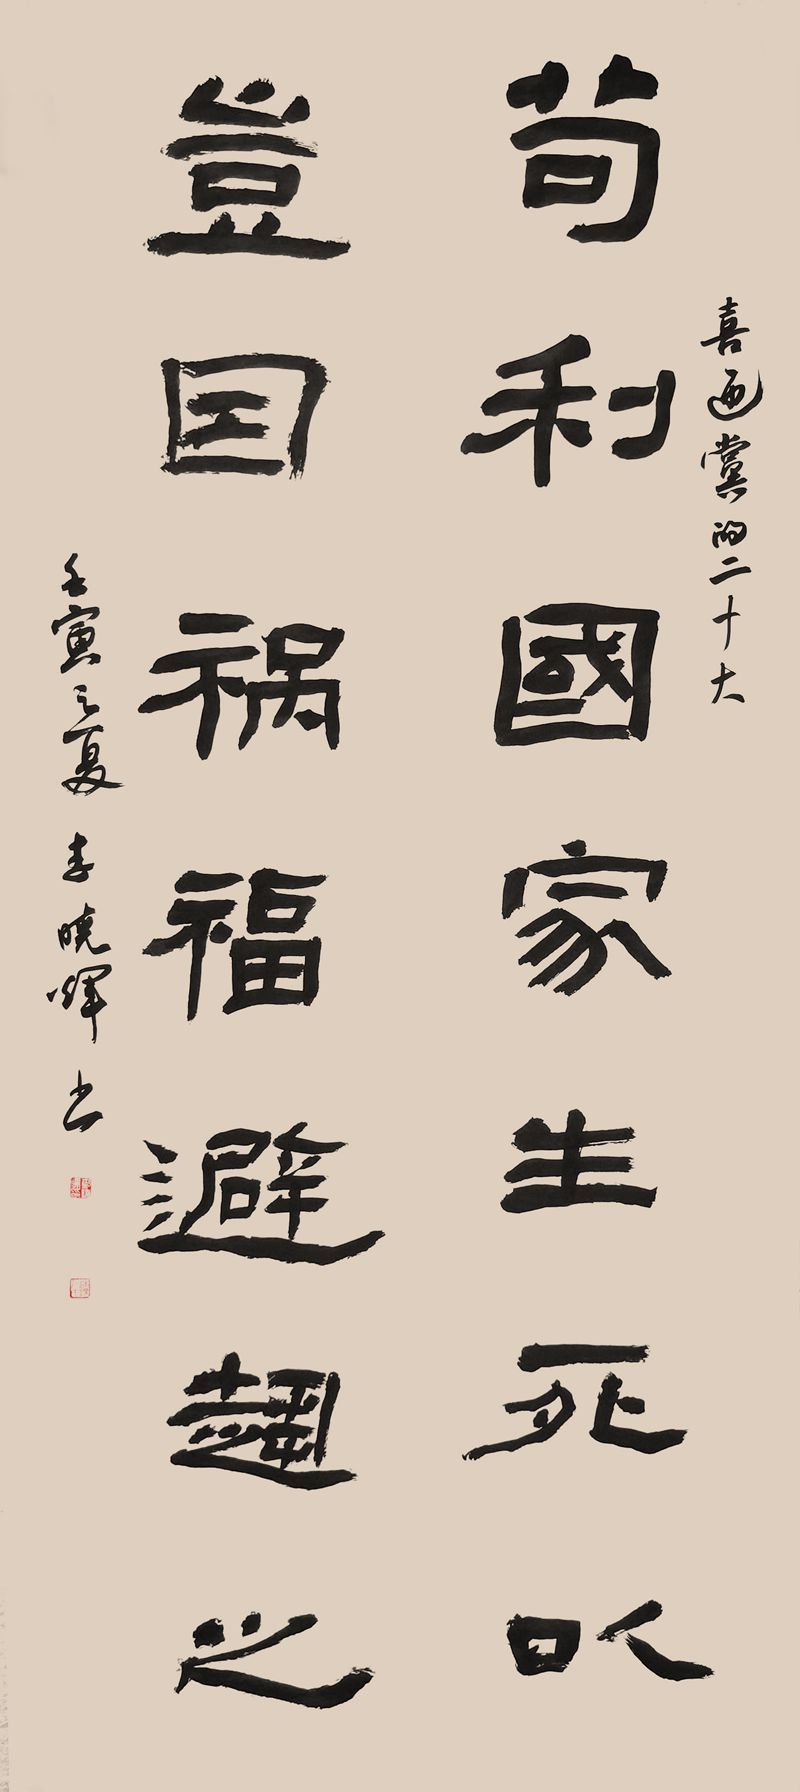 喜迎黨的二十大
苟利國家生死㕥
豈因祸福避趨之
壬寅之夏 李曉輝书